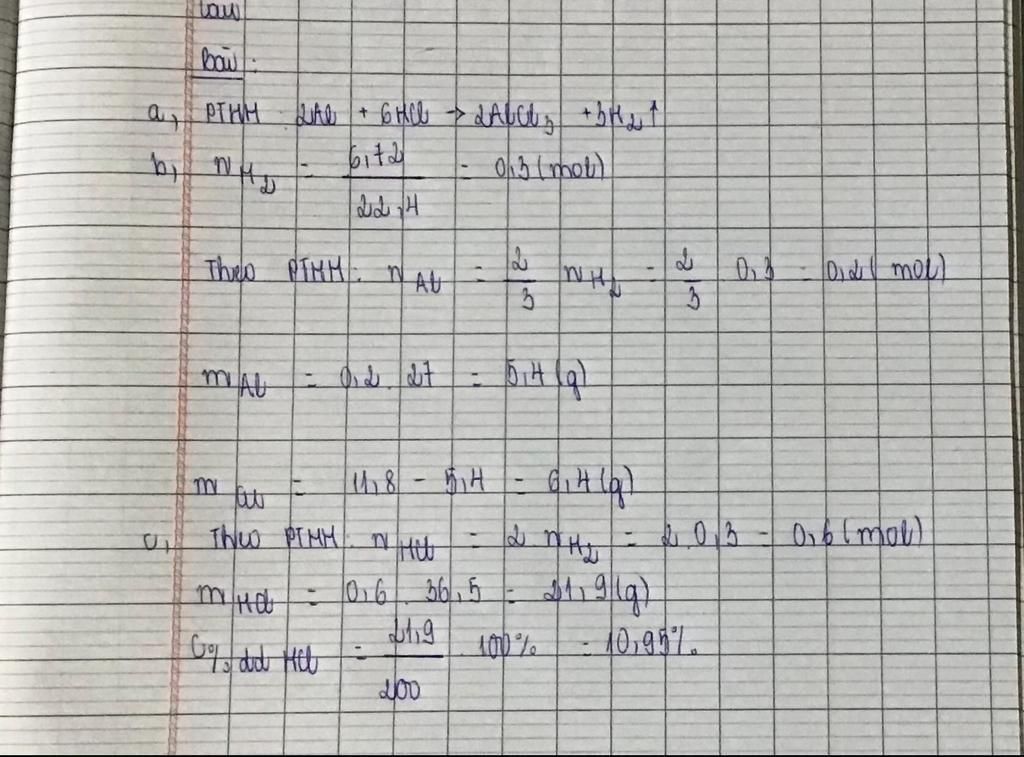 bài:
a, PTHH: 2Al + 6HCl → 2AlCl3 + 3H2↑
b, nH2 = 6,72/22,4 = 0,3 (mol)
Theo PTHH: nAl = 2/3 nH2 = 2/3 . 0,3 = 0,2 (mol)
mAl = 0,2 . 27 = 5,4 (g)
mCu = 11,8 - 5,4 = 6,4 (g)
c, Theo PTHH: nHCl = 2 nH2 = 2 . 0,3 = 0,6 (mol)
mHCl = 0,6 . 36,5 = 21,9 (g)
C% dd HCl = 21,9/200 . 100% = 10,95%